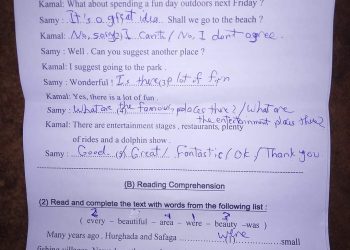 Kamal: What about spending a fun day outdoors next Friday ?
Samy : It's a great idea. Shall we go to the beach ?
Kamal: No, sorry I Can't / No, I don't agree.
Samy : Well . Can you suggest another place ?
Kamal: I suggest going to the park .
Samy : Wonderful ! Is there(3) lot of fun
Kamal: Yes, there is a lot of fun .
Samy : What are (4) the famous places there? / What are
the entertainment places there?
Kamal: There are entertainment stages , restaurants, plenty
of rides and a dolphin show .
Samy : Good (5) / Great / Fantastic / Ok / Thank you
(B) Reading Comprehension
(2) Read and complete the text with words from the following list :
2 4 1 3
( every – beautiful – area – were – beauty –was )
were
Many years ago , Hurghada and Safaga (1) small